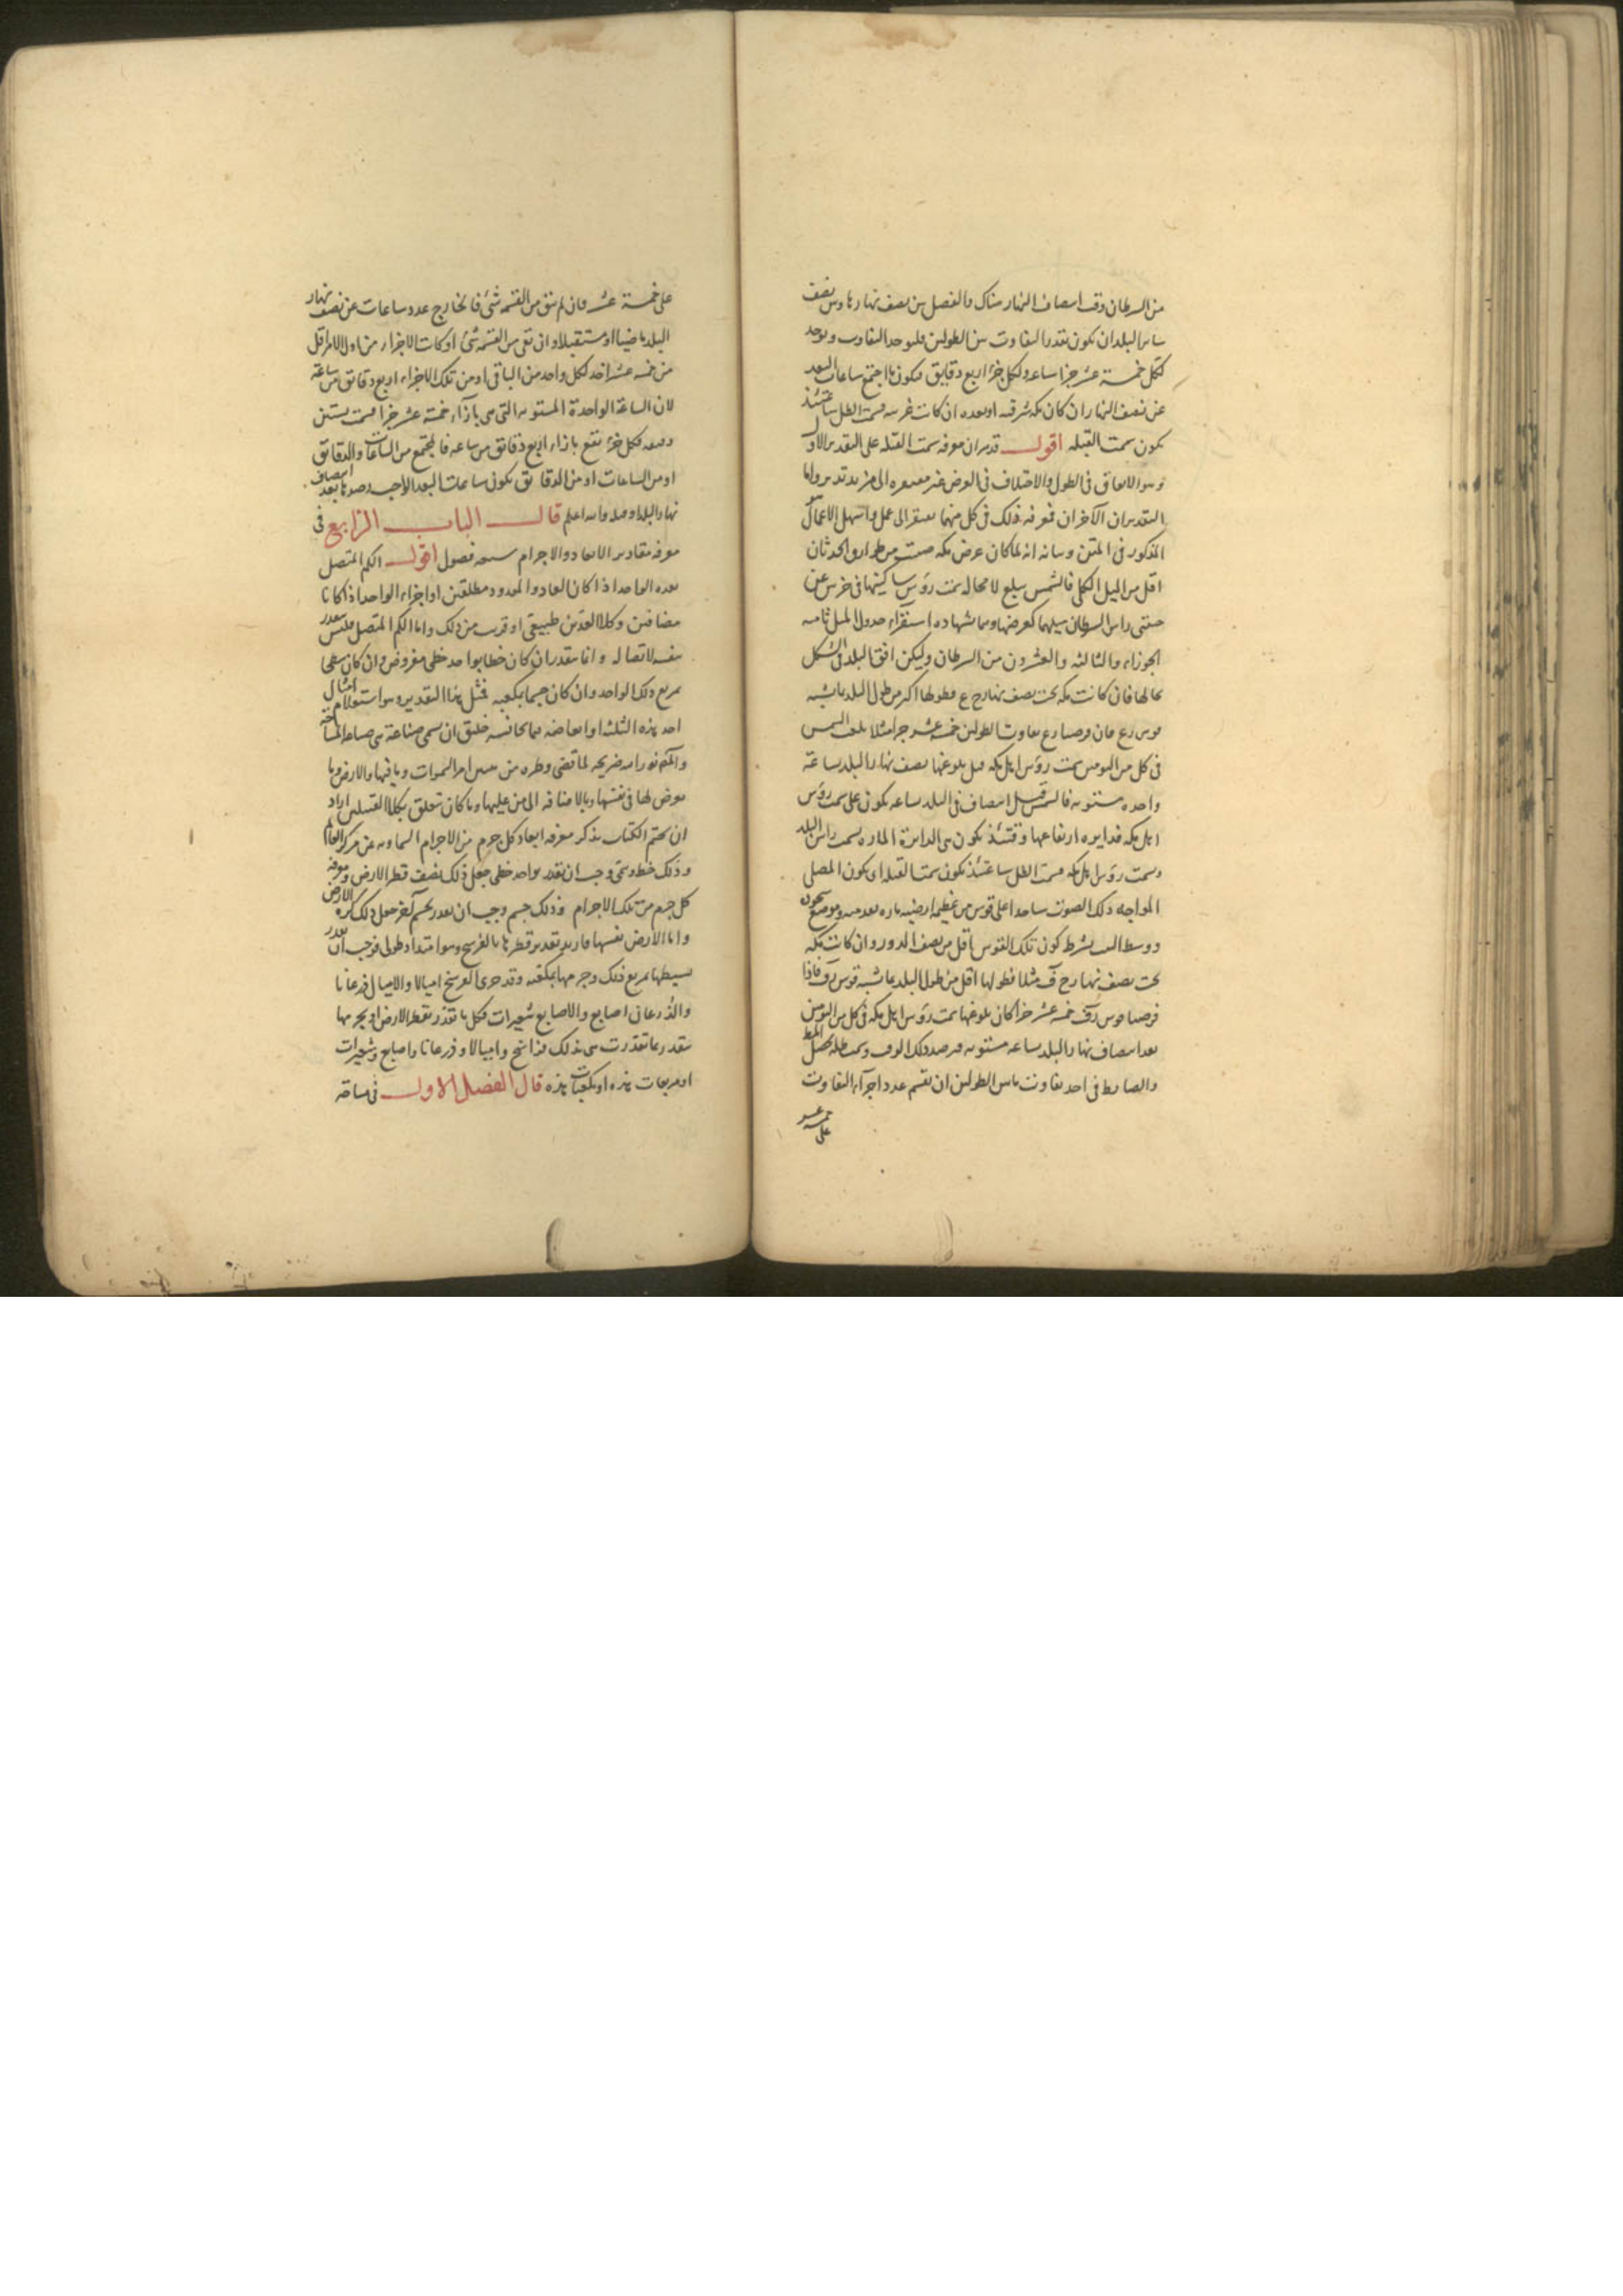 من السرطان وقت انتصاف النهار هناك والفضل بين نصف نهارها وبين نصف
سائر البلدان يكون بقدر التفاوت بين الطولين فليوخذ التفاوت ويوخذ
لكل خمسة عشر جزا ساعة ولكل جزء اربع دقايق فيكون ما اجتمع ساعات البعد
عن نصف النهار ان كان مكة شرقية او بعده ان كانت غربية فسمت الظل ساعتئذ
يكون سمت القبلة اقول قد مر ان معرفة سمت القبلة على التقدير الاول
وهو الاتفاق في الطول والاختلاف في العرض غير مفتقرة الى مزيد تدبر واما
التقديران الآخران فمعرفة ذلك في كل منهما يفتقر الى عمل واسهل الاعمال هو
المذكور في المتن وبيانه انه لما كان عرض مكة صينت من طوارق الحدثان
اقل من الميل الكلي فالشمس تبلغ لا محالة سمت رؤس ساكنيها في جزئين عن
جنبتي راس السرطان ميلهما كعرضها وهما بشهادة استقراء جدول الميل ثامنة
الجوزاء والثالثة والعشرون من السرطان وليكن افق البلد في الشكل
بحالها فان كانت مكة تحت نصف نهار ح ع فطولها اكثر من طول البلد بما يشبه
قوس ر ع فان فرضنا ر ع تفاوت الطولين خمسة عشر جزا مثلا بلغت الشمس
في كل من اليومين سمت رؤس اهل مكة قبل بلوغها نصف نهار البلد بساعة
واحدة مستوية فالشمس قبل انتصاف في البلد بساعة يكون على سمت رؤس
اهل مكة في دايرة ارتفاعها وقتئذ يكون هي الدائرة المارة بسمت راس البلد
وسمت رؤس اهل مكة فسمت الظل ساعتئذ يكون سمت القبلة او يكون المصلي
المواجه ذلك الصوب ساجدا على قوس من عظيمة ارضية مارة بقدميه وموضع سجوده
ووسط البيت بشرط كون تلك القوس اقل من نصف الدور وان كانت مكة
تحت نصف نهار ح ف مثلا فطولها اقل من طول البلد بما يشبه قوس ر ف فاذا
فرضنا قوس ر ف خمسة عشر جزا كان بلوغها سمت رؤس اهل مكة في كل من اليومين
بعد انتصاف نهار البلد بساعة مستوية فرصد ذلك الوقت وسمت ظله يحصل المط
والضابط في اخذ تفاوت ما بين الطولين ان تقسم عدد اجزاء التفاوت
على خمسة عشر
على خمسة عشر فان لم يبق من القسمة شئ فالخارج عدد ساعات عن نصف نهار
البلد ماضيا او مستقبلا وان بقي من القسمة شئ او كانت الاجزاء من اول الامر اقل
من خمسة عشر اخذ لكل واحد من الباقي او من تلك الاجزاء اربع دقائق من ساعة
لان الساعة الواحدة المستوية التي هي بازاء خمسة عشر جزا قسمت بستين
دقيقة فكل جزء تقع بازاء اربع دقائق من ساعة فالمجتمع من الساعات والدقائق
او من الساعات او من الدقائق يكون ساعات البعد الواجب رصدها بعد انتصاف
نهار البلد او قبله والله اعلم قال الباب الرابع في
معرفة مقادير الابعاد والاجرام سبعة فصول اقول الكم المنفصل
يعده الواحد اذا كان العاد والمعدود مطلقين او اجزاء الواحد اذا كانا
مضافين وكلا العدين طبيعي او قريب من ذلك واما الكم المتصل فليس يتقدر
بنفسه لاتصاله وانما يتقدر ان كان خطا بواحد خطي مفروض وان كان سطحا
بمربع ذلك الواحد وان كان جسما بمكعبه فمثل هذا التقدير وهو استعلام امثال
احد هذه الثلثة او ابعاضه مما يجانسه خليق ان يسمى صناعة هي صناعة المساحة
والمصنف نور الله ضريحه لما قضى وطره من تبيين امر السموات وما فيها والارض وما
يعرض لها في نفسها وبالاضافة الى من عليها وما كان يتعلق بكلا القسمين اراد
ان يختم الكتاب بذكر معرفة ابعاد كل جرم من الاجرام السماوية عن مركز العالم
وذلك خط ومتى وجب ان يقدر بواحد خطي جعل ذلك نصف قطر الارض ومعرفة
كل جرم من تلك الاجرام وذلك جسم وجب ان يقدر بجسم آخر جعل ذلك كرة الارض
واما الارض نفسها فاريد تقدير قطرها بالفرسخ وهو امتداد طولي فوجب ان يقدر
بسيطها بمربع ذلك وجرمها بمكعبه وقد جزي الفرسخ اميالا والاميال ذرعانا
والذرعان اصابع والاصابع شعيرات فكل ما تقدر بقطر الارض او بجرمها
يتقدر بما تقدرت هي بذلك فراسخ واميالا وذرعانا واصابع وشعيرات
او مربعات هذه او مكعبات هذه قال الفصل الاول في مساحة